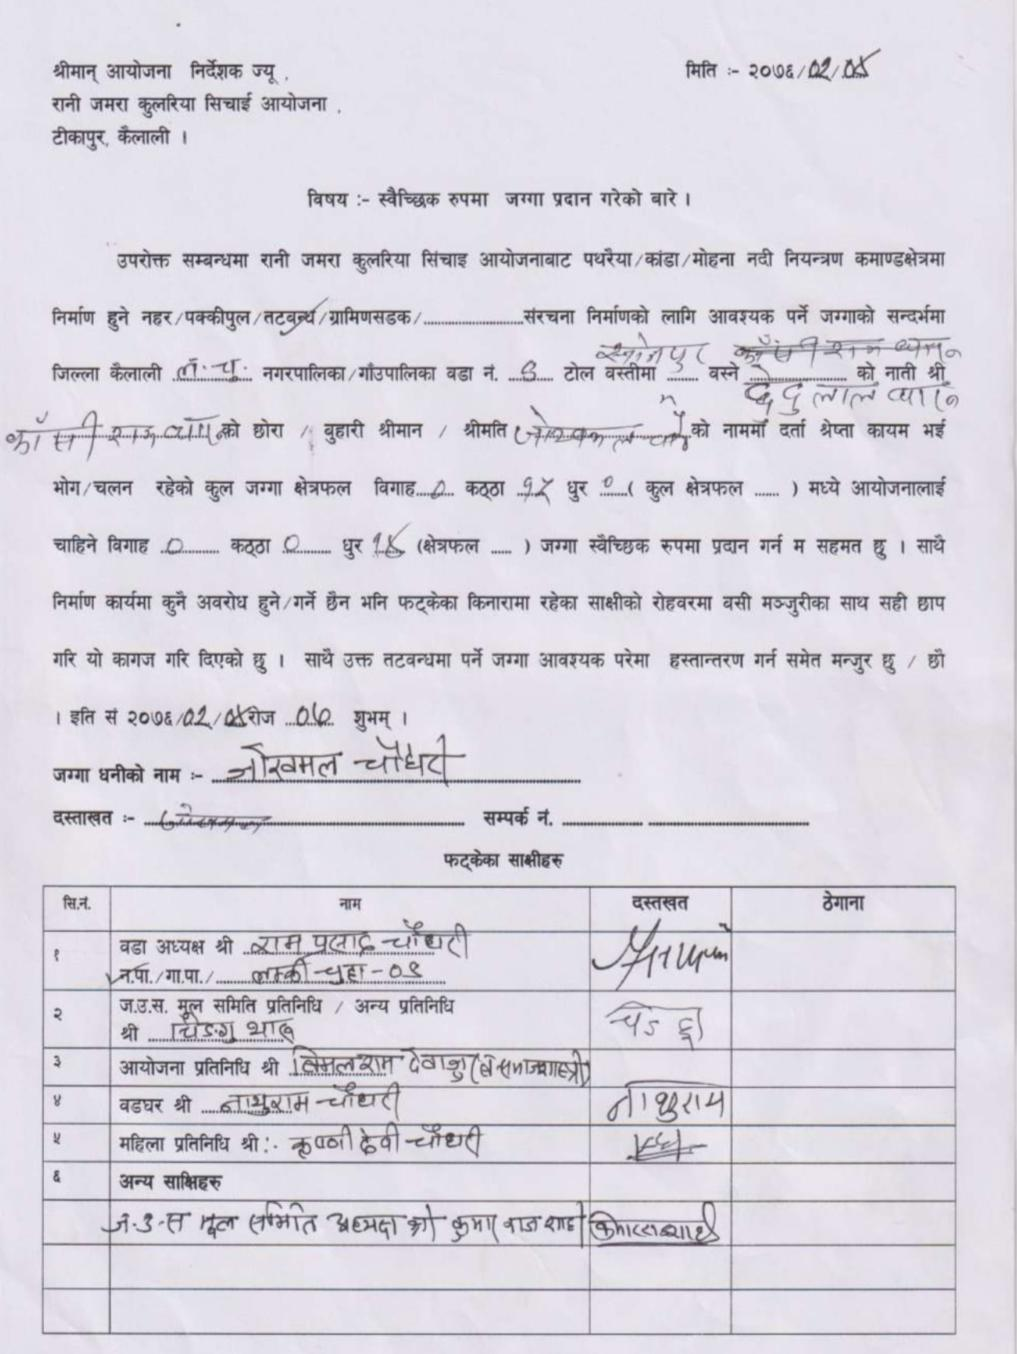 श्रीमान् आयोजना निर्देशक ज्यू ,
मिति :- २०७६/02/05
रानी जमरा कुलरिया सिचाई आयोजना ,
टीकापुर, कैलाली ।
विषय :- स्वैच्छिक रुपमा जग्गा प्रदान गरेको बारे ।
उपरोक्त सम्बन्धमा रानी जमरा कुलरिया सिंचाइ आयोजनाबाट पथरैया/कांडा/मोहना नदी नियन्त्रण कमाण्डक्षेत्रमा
निर्माण हुने नहर/पक्कीपुल/तटबन्ध/ग्रामिणसडक/........................संरचना निर्माणको लागि आवश्यक पर्ने जग्गाको सन्दर्भमा
जिल्ला कैलाली ल.चु. नगरपालिका/गाँउपालिका वडा नं. टोल वस्तीमा ........ वस्ने को नाती श्री
को छोरा / बुहारी श्रीमान / श्रीमति को नाममाँ दर्ता श्रेप्ता कायम भई
भोग/चलन रहेको कुल जग्गा क्षेत्रफल विगाह..0.. कठ्ठा धुर ..0..( कुल क्षेत्रफल ...... ) मध्ये आयोजनालाई
चाहिने विगाह .0......... कठ्ठा 0........ धुर (क्षेत्रफल ..... ) जग्गा स्वैच्छिक रुपमा प्रदान गर्न म सहमत छु । साथै
निर्माण कार्यमा कुनै अवरोध हुने/गर्ने छैन भनि फट्केका किनारामा रहेका साक्षीको रोहवरमा वसी मञ्जुरीका साथ सही छाप
गरि यो कागज गरि दिएको छु । साथै उक्त तटवन्धमा पर्ने जग्गा आवश्यक परेमा हस्तान्तरण गर्न समेत मन्जुर छु / छौ
। इति सं २०७६/02/05रोज शुभम् ।
जग्गा धनीको नाम :- जोखमल चौधरी
दस्ताखत :- सम्पर्क नं. .................. ....................................
फट्केका साक्षीहरु
सि.नं. नाम दस्तखत ठेगाना
१ वडा अध्यक्ष श्री राम प्रसाद चौधरी
न.पा./गा.पा./ लम्की-चुहा-०९
२ ज.उ.स. मूल समिति प्रतिनिधि / अन्य प्रतिनिधि
श्री
३ आयोजना प्रतिनिधि श्री विमलराम देवाजु
४ वडघर श्री नाथुराम चौधरी नाथुराम
५ महिला प्रतिनिधि श्री:- कृष्णी देवी चौधरी
६ अन्य साक्षिहरु
ज.उ.स मूल समिति